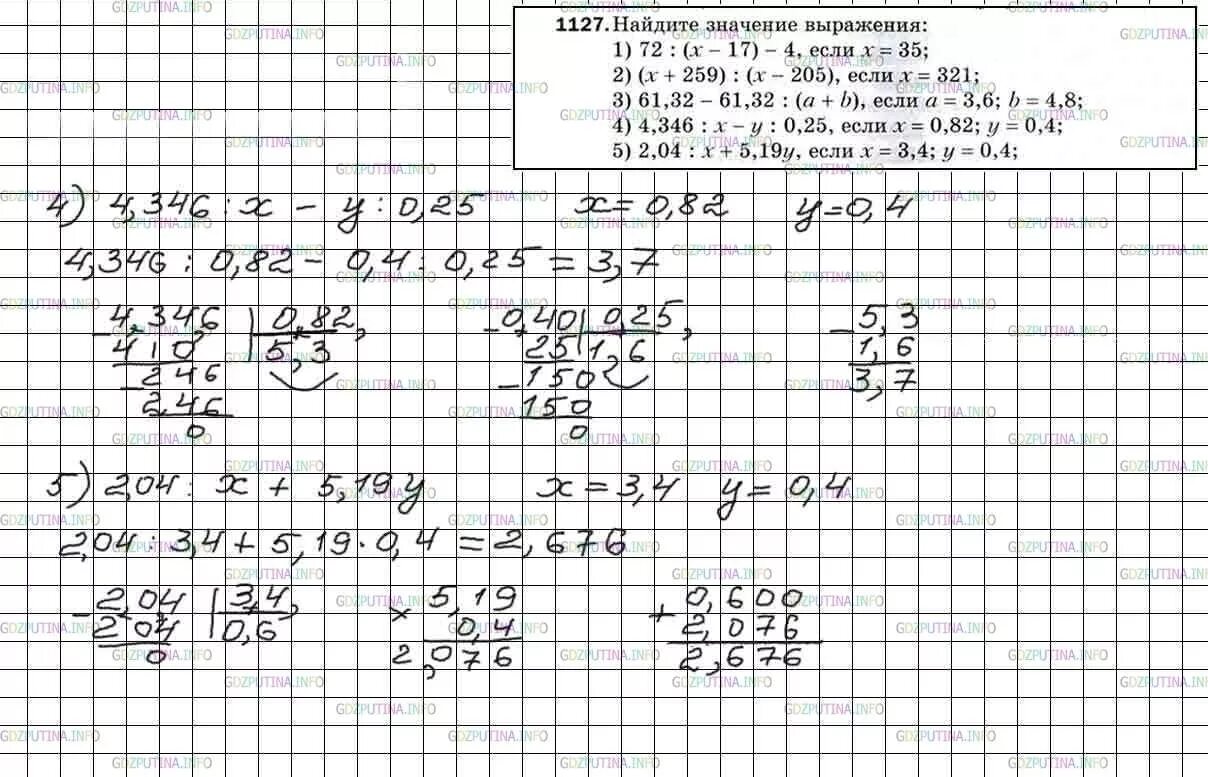 1127. Найдите значение выражения:
1) 72 : (x − 17) − 4, если x = 35;
2) (x + 259) : (x − 205), если x = 321;
3) 61,32 − 61,32 : (a + b), если a = 3,6; b = 4,8;
4) 4,346 : x − y : 0,25, если x = 0,82; y = 0,4;
5) 2,04 : x + 5,19y, если x = 3,4; y = 0,4;
4) 4,346 : x − y : 0,25 x = 0,82 y = 0,4
4,346 : 0,82 − 0,4 : 0,25 = 3,7
− 4,346 | 0,82, − 0,40 | 0,25, − 5,3
410 | 5,3 25 | 1,6 1,6
− 246 − 150 3,7
246 150
0 0
5) 2,04 : x + 5,19y x = 3,4 y = 0,4
2,04 : 3,4 + 5,19 · 0,4 = 2,676
− 2,04 | 3,4, × 5,19 + 0,600
204 | 0,6 0,4 2,076
0 2,076 2,676
GDZPUTINA.INFO